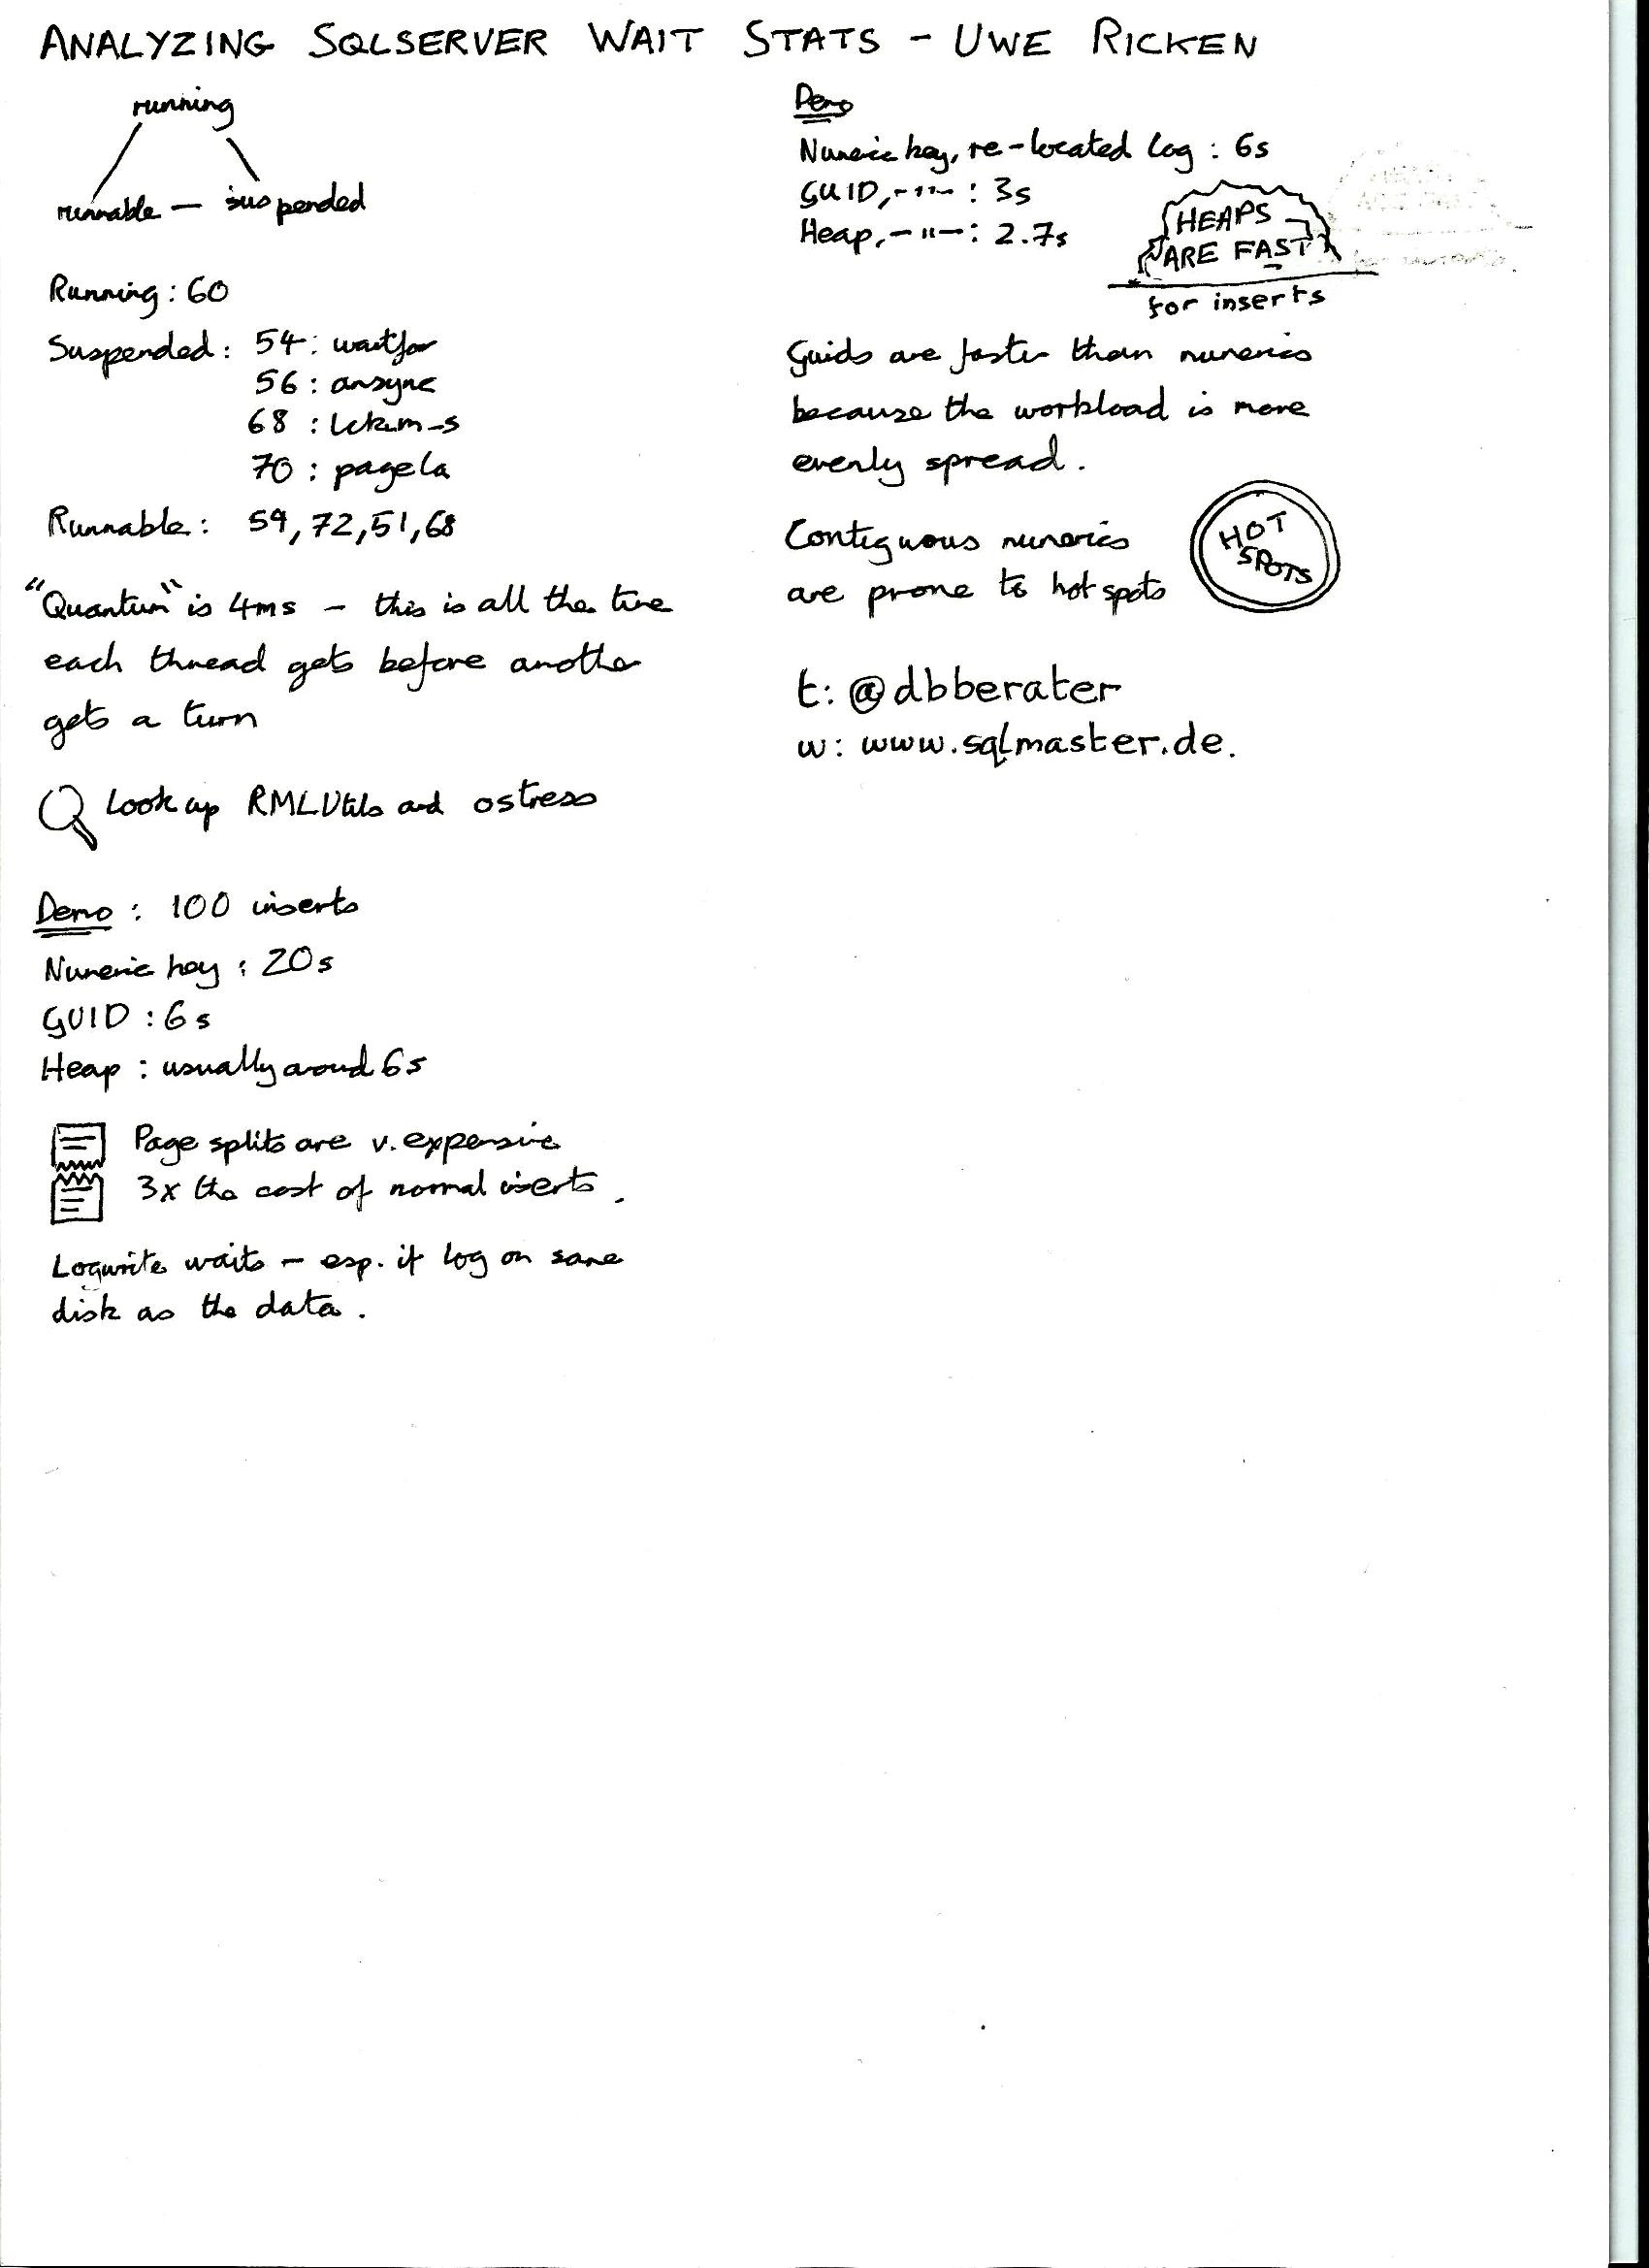 ANALYZING SQLSERVER WAIT STATS - UWE RICKEN
running
runnable — suspended
Running: 60
Suspended: 54: waitfor
56: ansync
68: lck_m_s
70: pagela
Runnable: 59, 72, 51, 68
"Quantum" is 4ms - this is all the time
each thread gets before another
gets a turn
Look up RMLUtils and ostress
Demo: 100 inserts
Numeric key: 20s
GUID: 6s
Heap: usually around 6s
Page splits are v. expensive
3x the cost of normal inserts.
Logwrite waits - esp. if log on same
disk as the data.
Demo
Numeric key, re-located log: 6s
GUID, -"-: 3s
Heap, -"-: 2.7s
HEAPS
ARE FAST
for inserts
Guids are faster than numerics
because the workload is more
evenly spread.
Contiguous numerics
are prone to hot spots
HOT
SPOTS
t: @dbberater
w: www.sqlmaster.de.